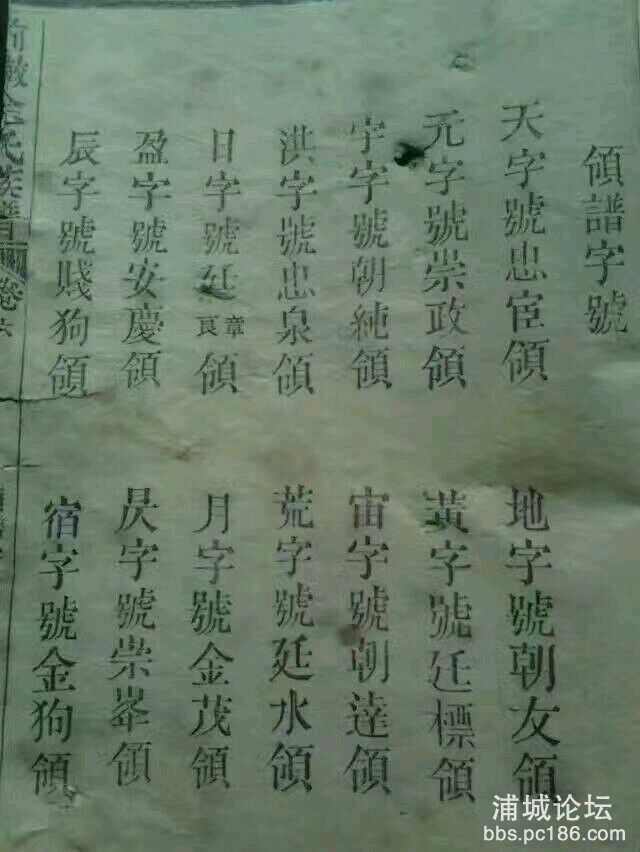 領譜字號
天字號忠宦領
地字號朝友領
元字號崇政領
黃字號廷標領
宇字號朝純領
宙字號朝達領
洪字號忠泉領
荒字號廷水領
日字號廷章良領
月字號金茂領
盈字號安慶領
昃字號崇峯領
辰字號賤狗領
宿字號金狗領
金氏族譜 卷六
浦城论坛
bbs.pc186.com